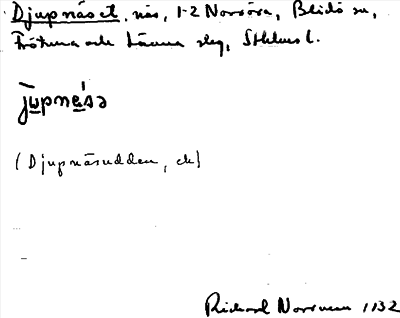 Djupnäset, näs, 1-2 Norröra, Blidö sn,
Frötuna och Länna slg, Sthlms l.
jupnésə
(Djupnäsudden, ek)
Richard Norrman 1932